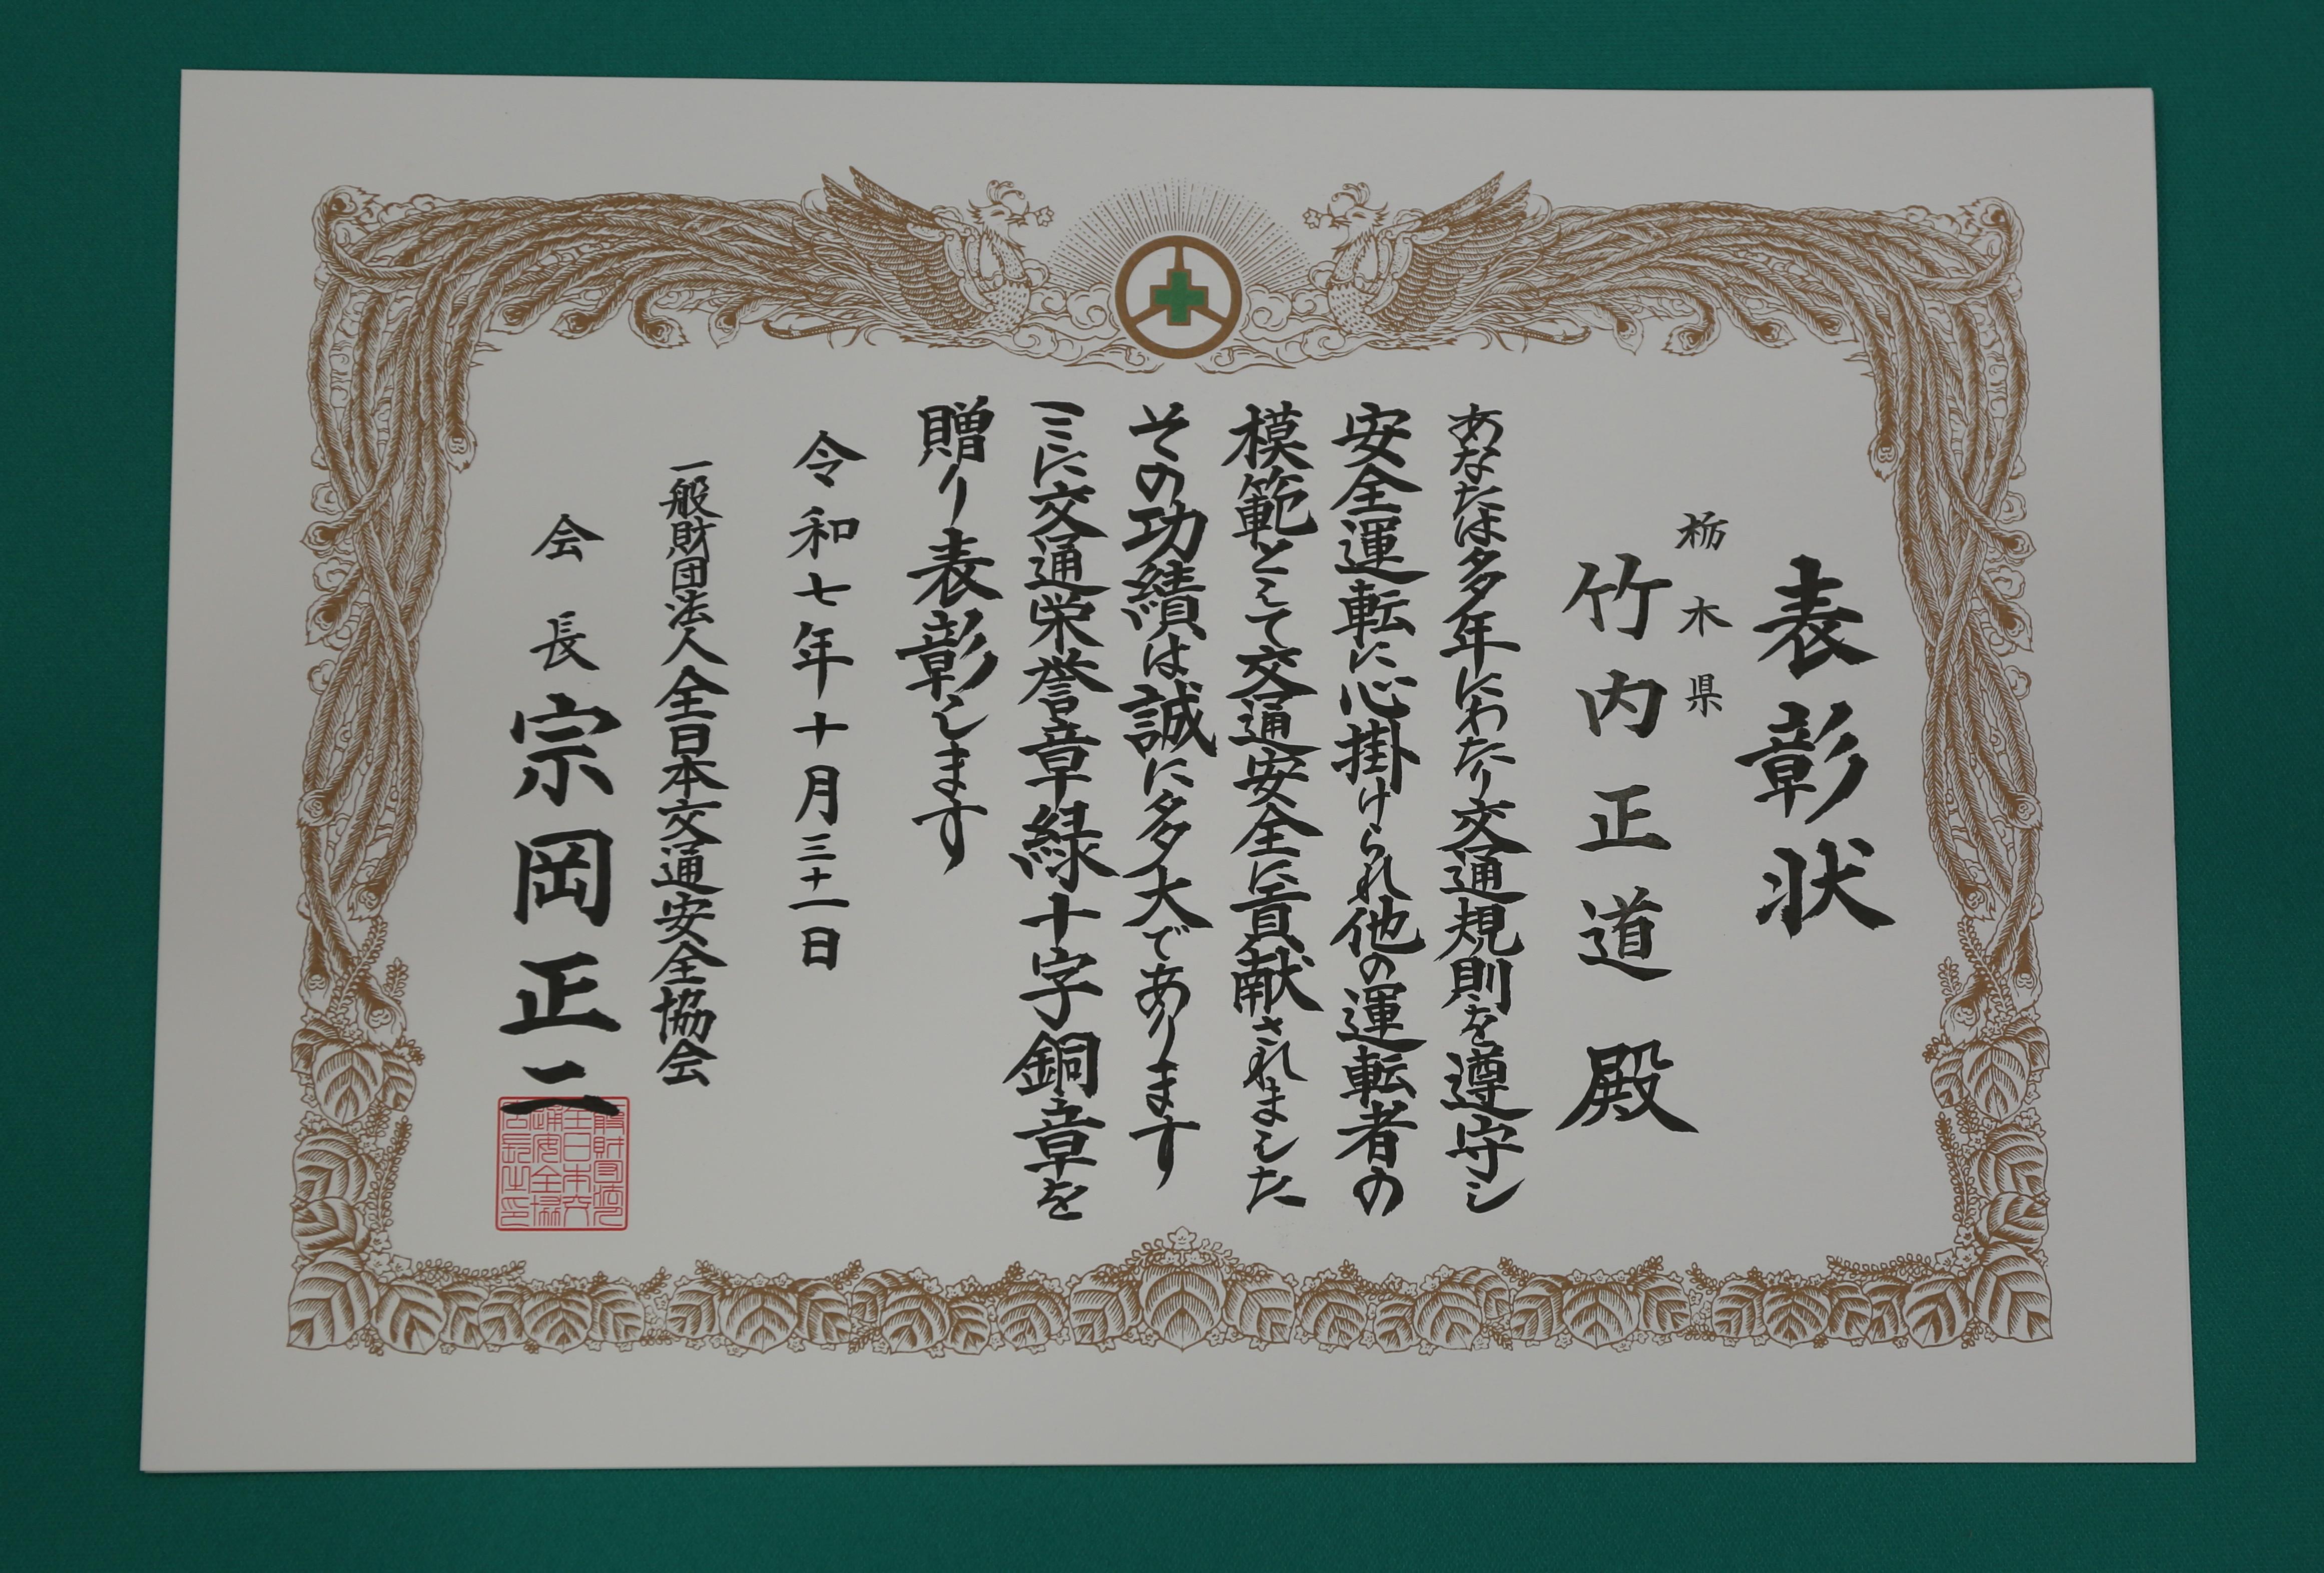 表彰状
栃木県
竹内正道 殿
あなたは多年にわたり交通規則を遵守し
安全運転に心掛けられ他の運転者の
模範として交通安全に貢献されました
その功績は誠に多大であります
ここに交通栄誉章緑十字銅章を
贈り表彰します
令和七年十月三十一日
一般財団法人全日本交通安全協会
会長 宗岡正二
一般財団法人
全日本交
通安全協
会長之印